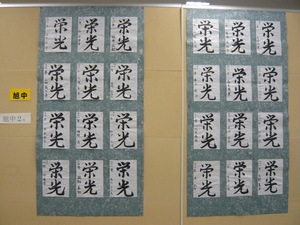 旭中
旭中2年
栄光 栄光 栄光
栄光 栄光 栄光
栄光 栄光 栄光
栄光 栄光 栄光
栄光 栄光 栄光
栄光 栄光 栄光
栄光 栄光 栄光
栄光 栄光 栄光